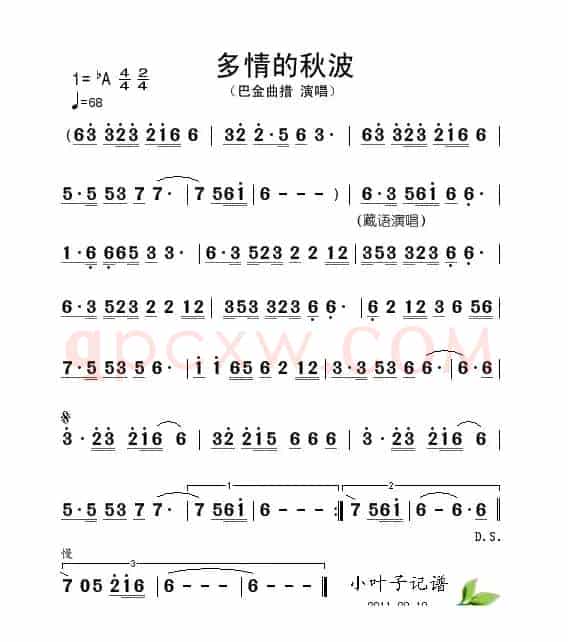 多情的秋波
1=♭A 4/4 2/4
(巴金曲措 演唱)
♩=68
(63 323 216 6 | 32 2·5 6 3· | 63 323 216 6 |
5·5 53 7 7· | 7 561 | 6 - - - ) | 6·3 561 6 6· |
(藏语演唱)
1·6 665 3 3· | 6·3 523 2 2 12 | 353 323 6 6· |
6·3 523 2 2 12 | 353 323 6 6· | 6 2 12 3 6 56 |
qpcxw.COM
7·5 53 5 6· | i i 65 6 12 | 3·3 53 6 6· | 6·6 |
3·23 216 6 | 32 215 6 6 6 | 3·23 216 6 |
1 2
5·5 53 7 7· | 7 561 | 6 - - - :‖ 7 561 | 6 - 6·6 ‖
D.S.
慢 3
7 05 216 | 6 - - - | 6 - - - ‖
小叶子记谱